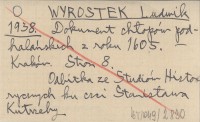 O WYROSTEK Ludwik
1938. Dokument chłopów pod-
halańskich z roku 1605.
Kraków. Stron 8.
Odbitka ze Studiów Histo-
rycznych ku czci Stanisława
Kutrzeby